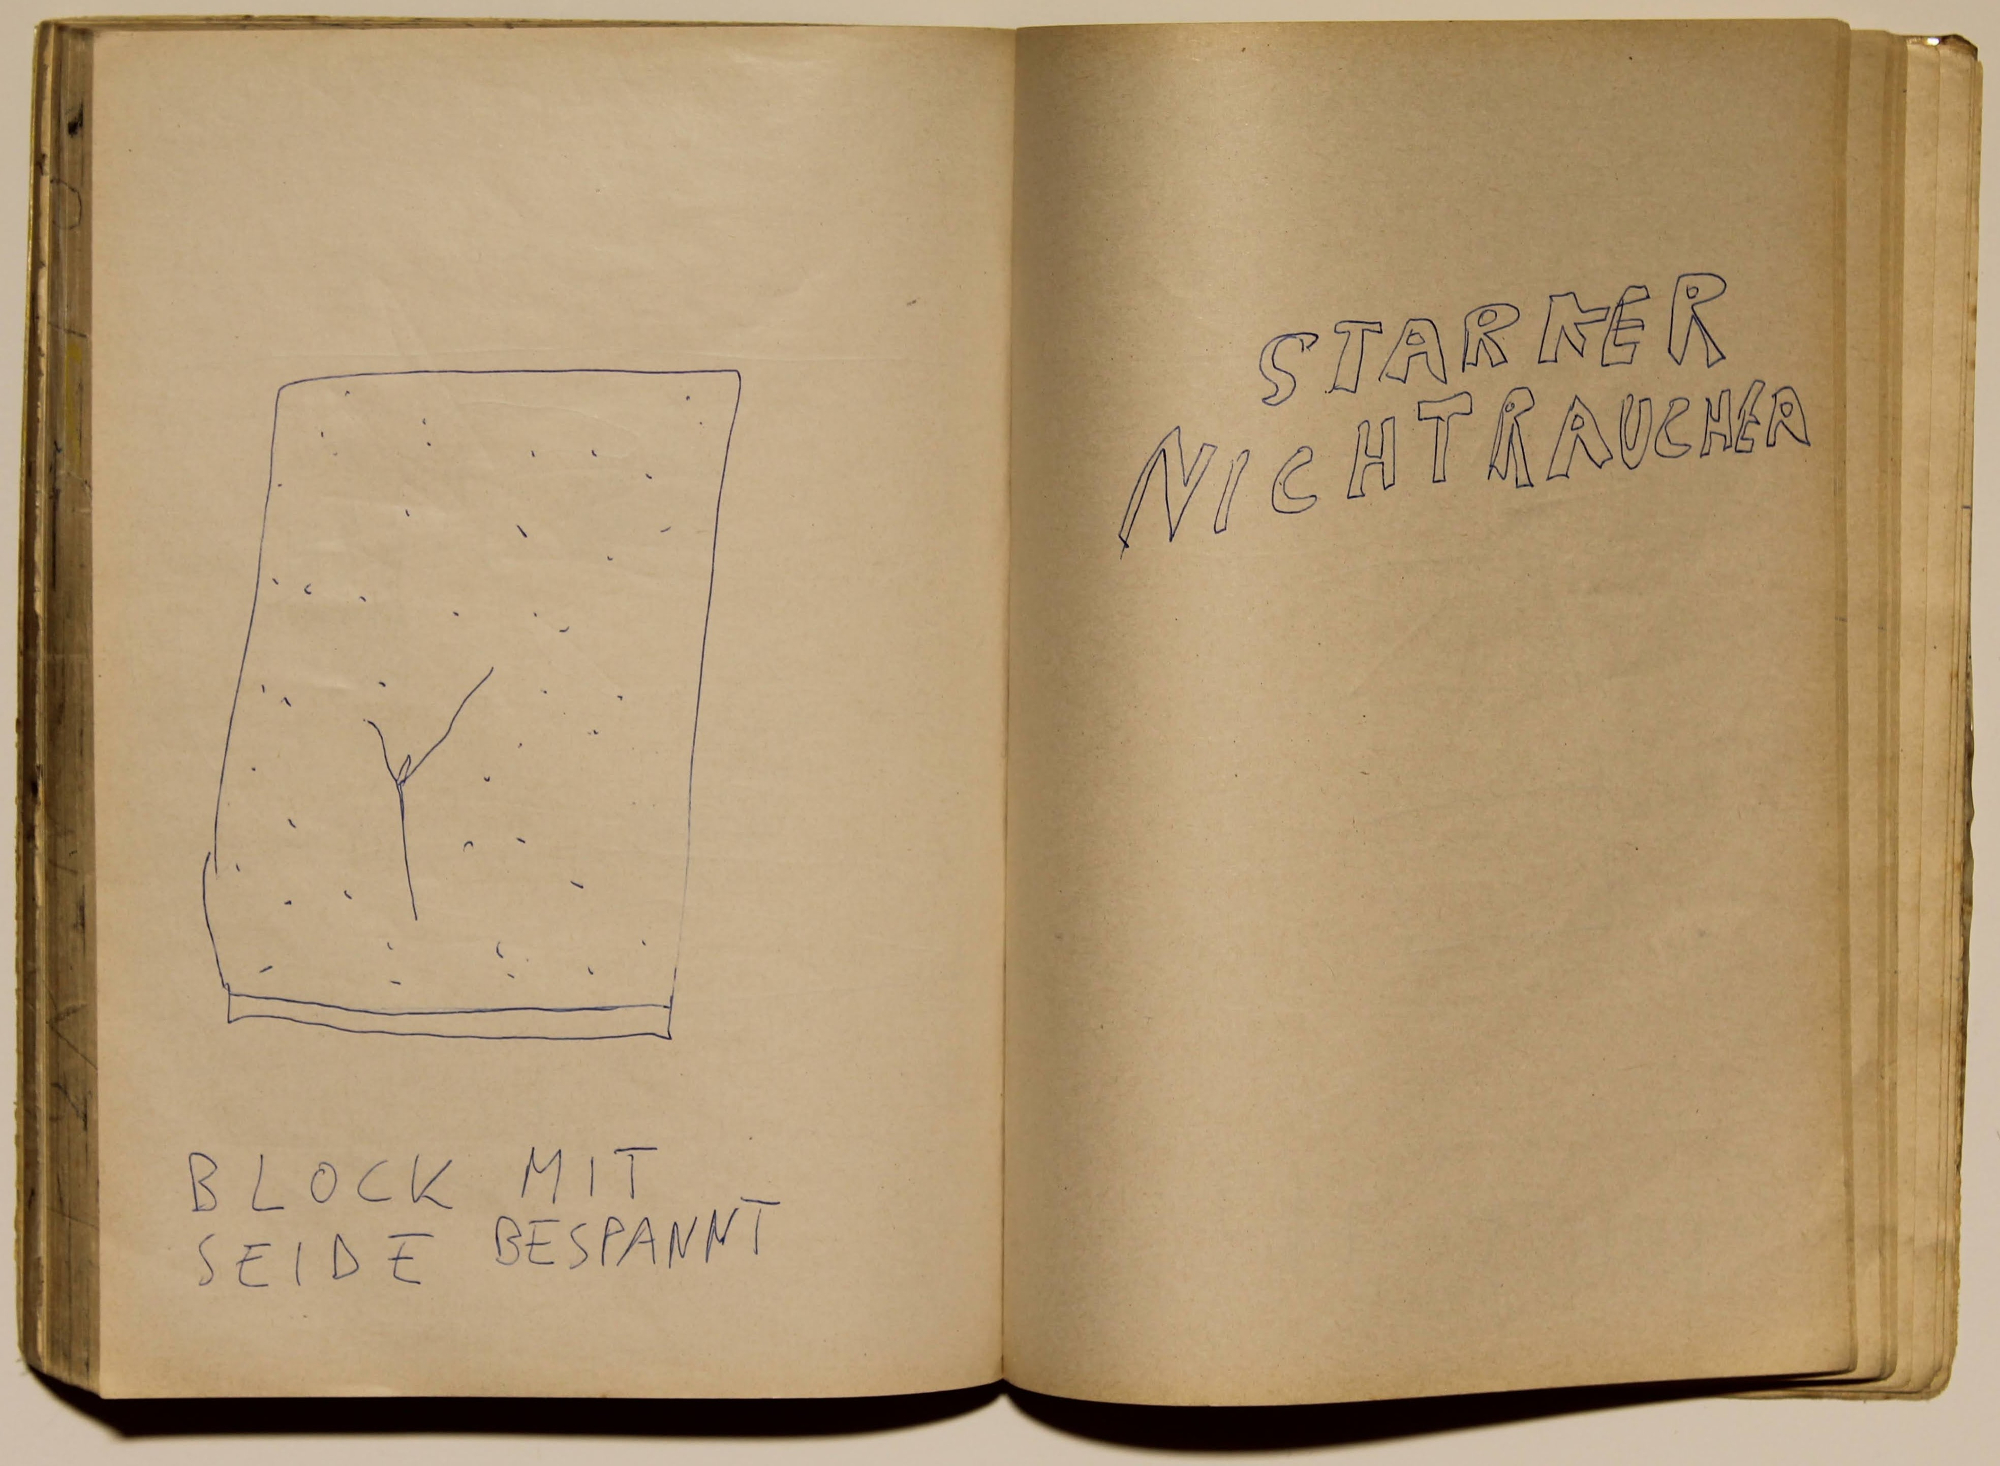 BLOCK MIT
SEIDE BESPANNT
STARKER
NICHTRAUCHER